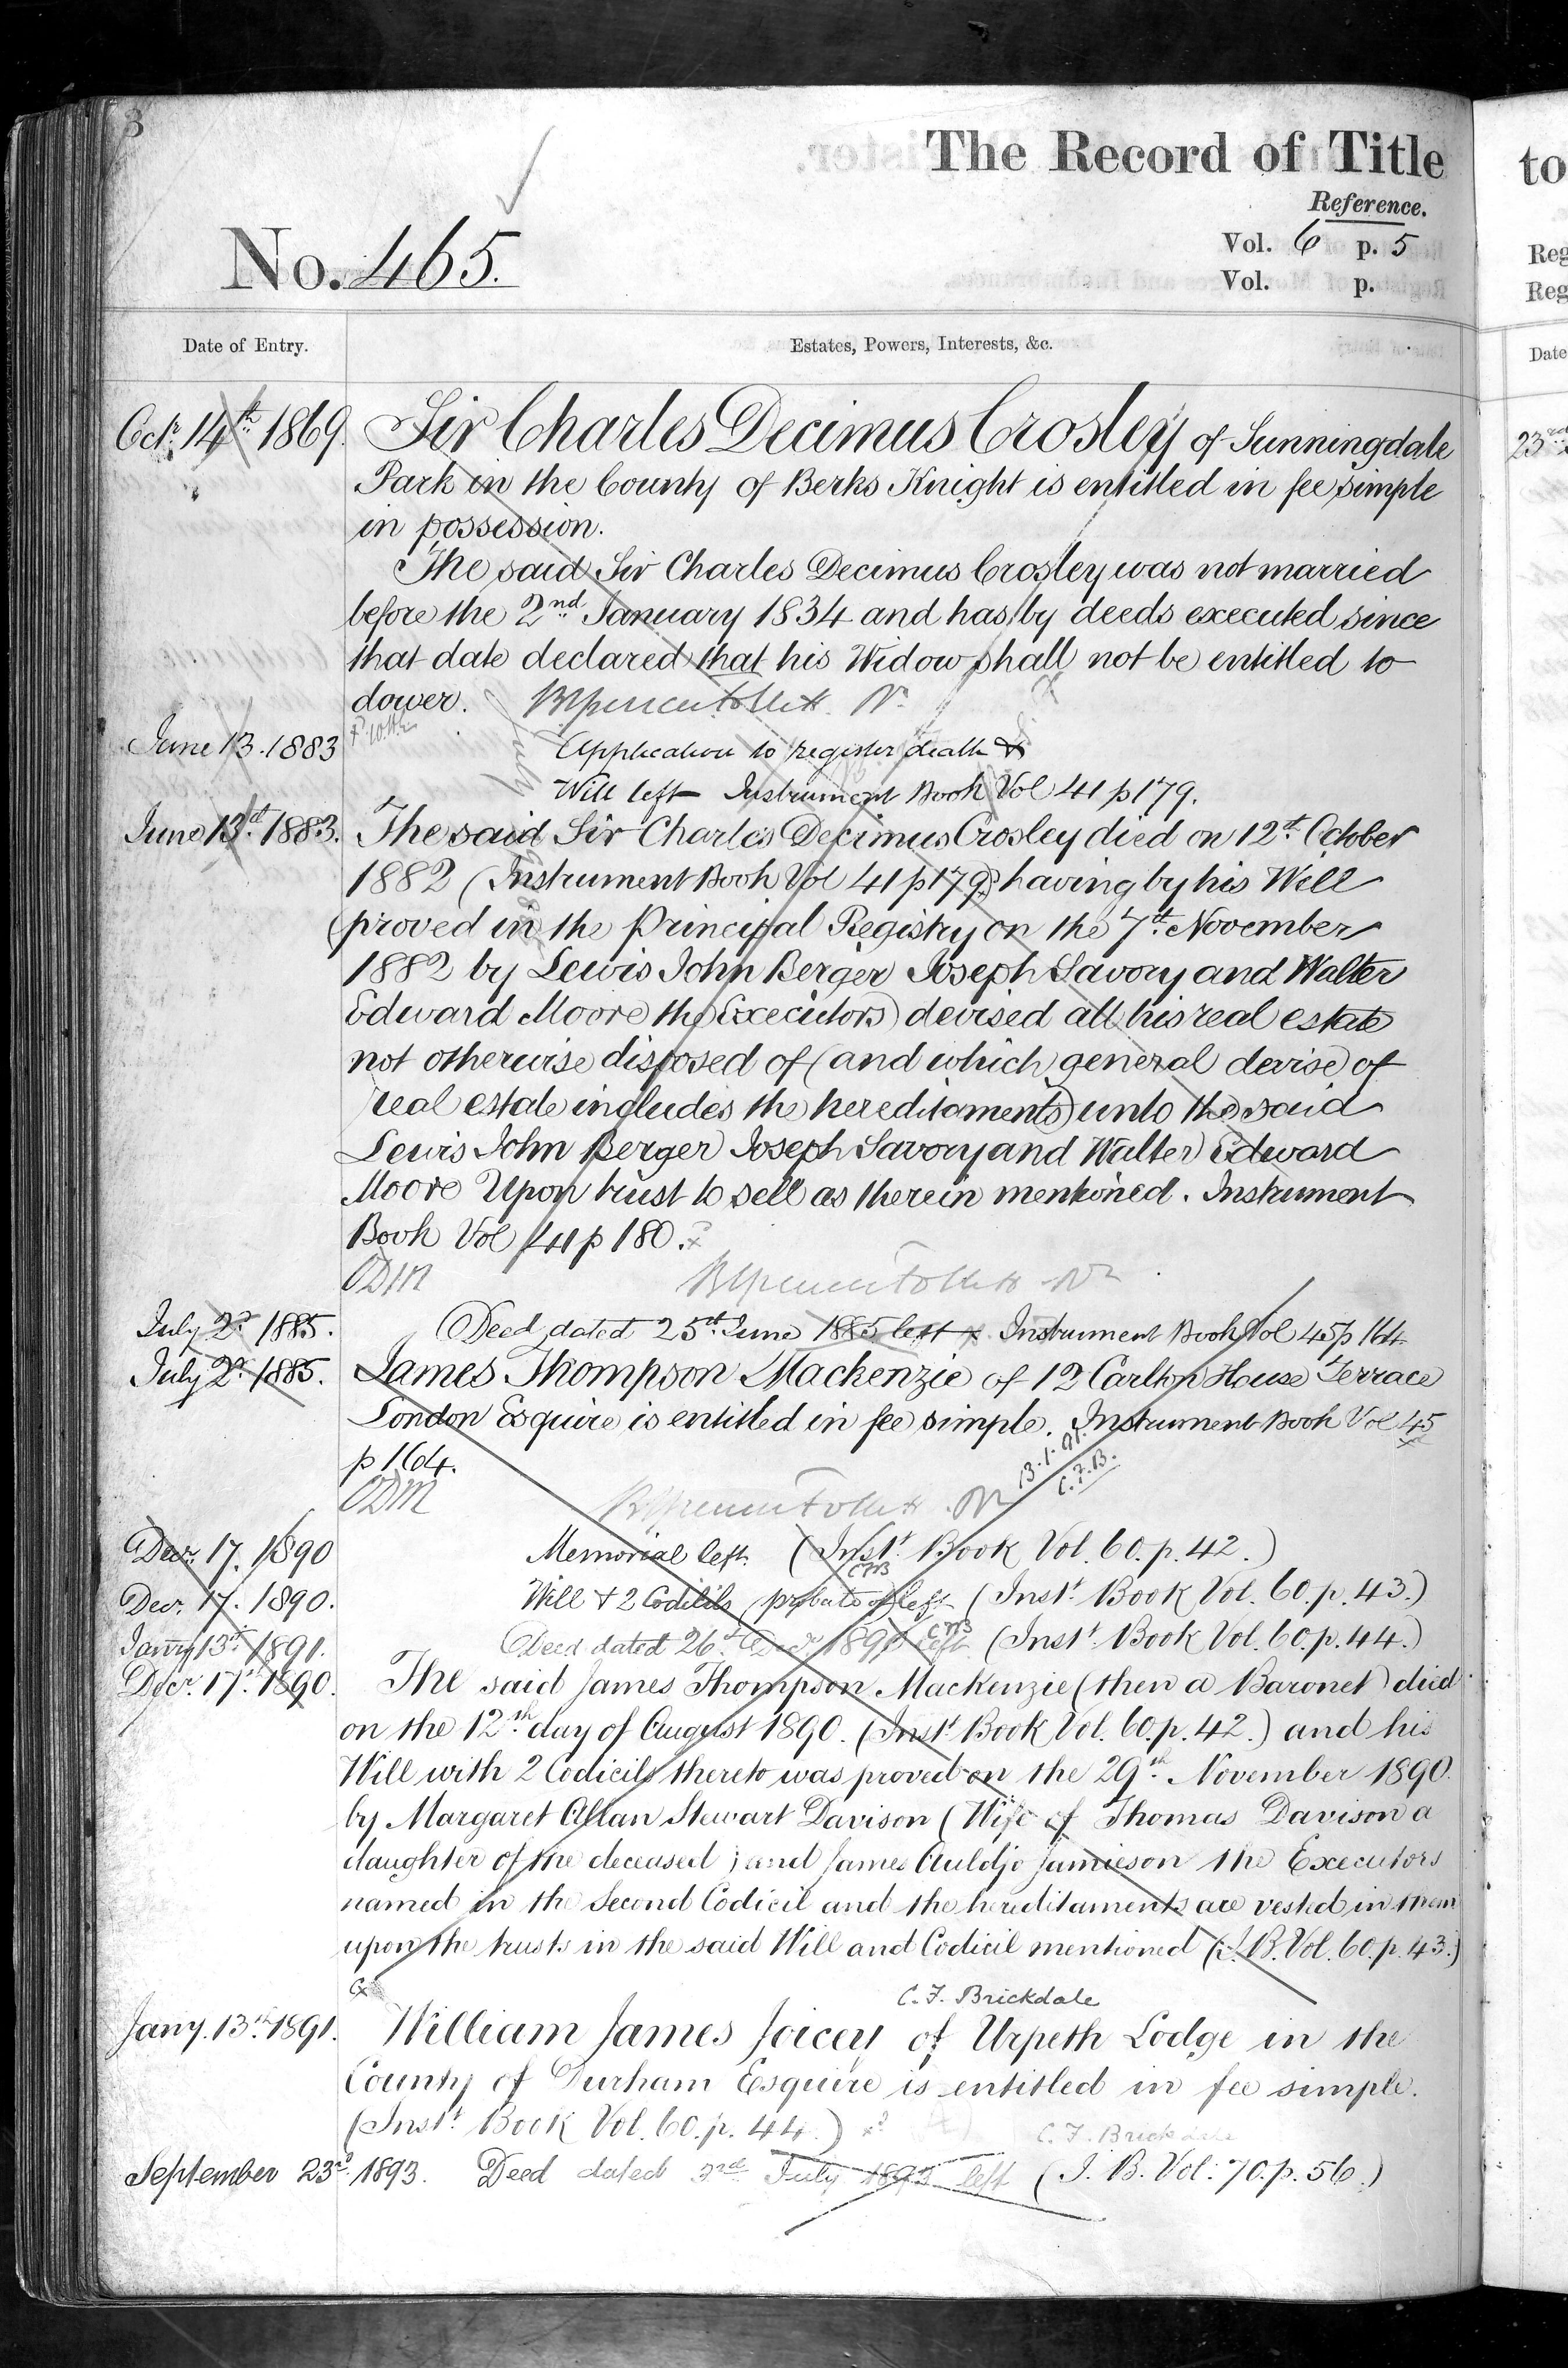 3
The Record of Title
Reference.
No. 465.
Vol. 6 p. 5
Vol. p.
Date of Entry.
Estates, Powers, Interests, &c.
Octr. 14th 1869. Sir Charles Decimus Crosley of Sunningdale
Park in the County of Berks Knight is entitled in fee simple
in possession.
The said Sir Charles Decimus Crosley was not married
before the 2nd January 1834 and has by deeds executed since
that date declared that his Widow shall not be entitled to
dower.
June 13. 1883 Application to register death &
Will left Instrument Book Vol 41 p 179.
June 13th 1883. The said Sir Charles Decimus Crosley died on 12th October
1882 (Instrument Book Vol 41 p 179) having by his Will
(proved in the Principal Registry on the 7th November
1882 by Lewis John Berger Joseph Savory and Walter
Edward Moore the Executors) devised all his real estate
not otherwise disposed of (and which general devise of
real estate includes the hereditaments) unto the said
Lewis John Berger Joseph Savory and Walter Edward
Moore Upon trust to sell as therein mentioned. Instrument
Book Vol 41 p 180.
ODM
July 2d 1885. Deed dated 25th June 1885 left Instrument Book Vol 45 p 164
July 2d 1885. James Thompson Mackenzie of 12 Carlton House Terrace
London Esquire is entitled in fee simple. Instrument Book Vol 45
p 164.
13.1.91.
C.F.B.
ODM
Decr. 17. 1890 Memorial left. (Inst. Book Vol. 60. p. 42.)
CFB
Decr. 17. 1890. Will & 2 Codicils (probate of) left (Inst. Book Vol. 60. p. 43.)
CFB
Jany 13th 1891. Deed dated 26th Decr 1890 left (Inst. Book Vol. 60. p. 44.)
Decr. 17th 1890. The said James Thompson Mackenzie (then a Baronet) died
on the 12th day of August 1890. (Inst. Book Vol. 60. p. 42.) and his
Will with 2 Codicils thereto was proved on the 29th November 1890
by Margaret Allan Stewart Davison (Wife of Thomas Davison a
daughter of the deceased) and James Auldjo Jamieson the Executors
named in the Second Codicil and the hereditaments are vested in them
upon the trusts in the said Will and Codicil mentioned (I.B. Vol. 60. p. 43.)
C. F. Brickdale
Jany. 13th 1891. William James Joicey of Urpeth Lodge in the
County of Durham Esquire is entitled in fee simple.
(Inst. Book Vol. 60. p. 44.)
C. F. Brickdale
September 23d 1893. Deed dated 3rd July 1893 left (I. B. Vol: 70. p. 56.)
to
Reg
Reg
Date
23rd